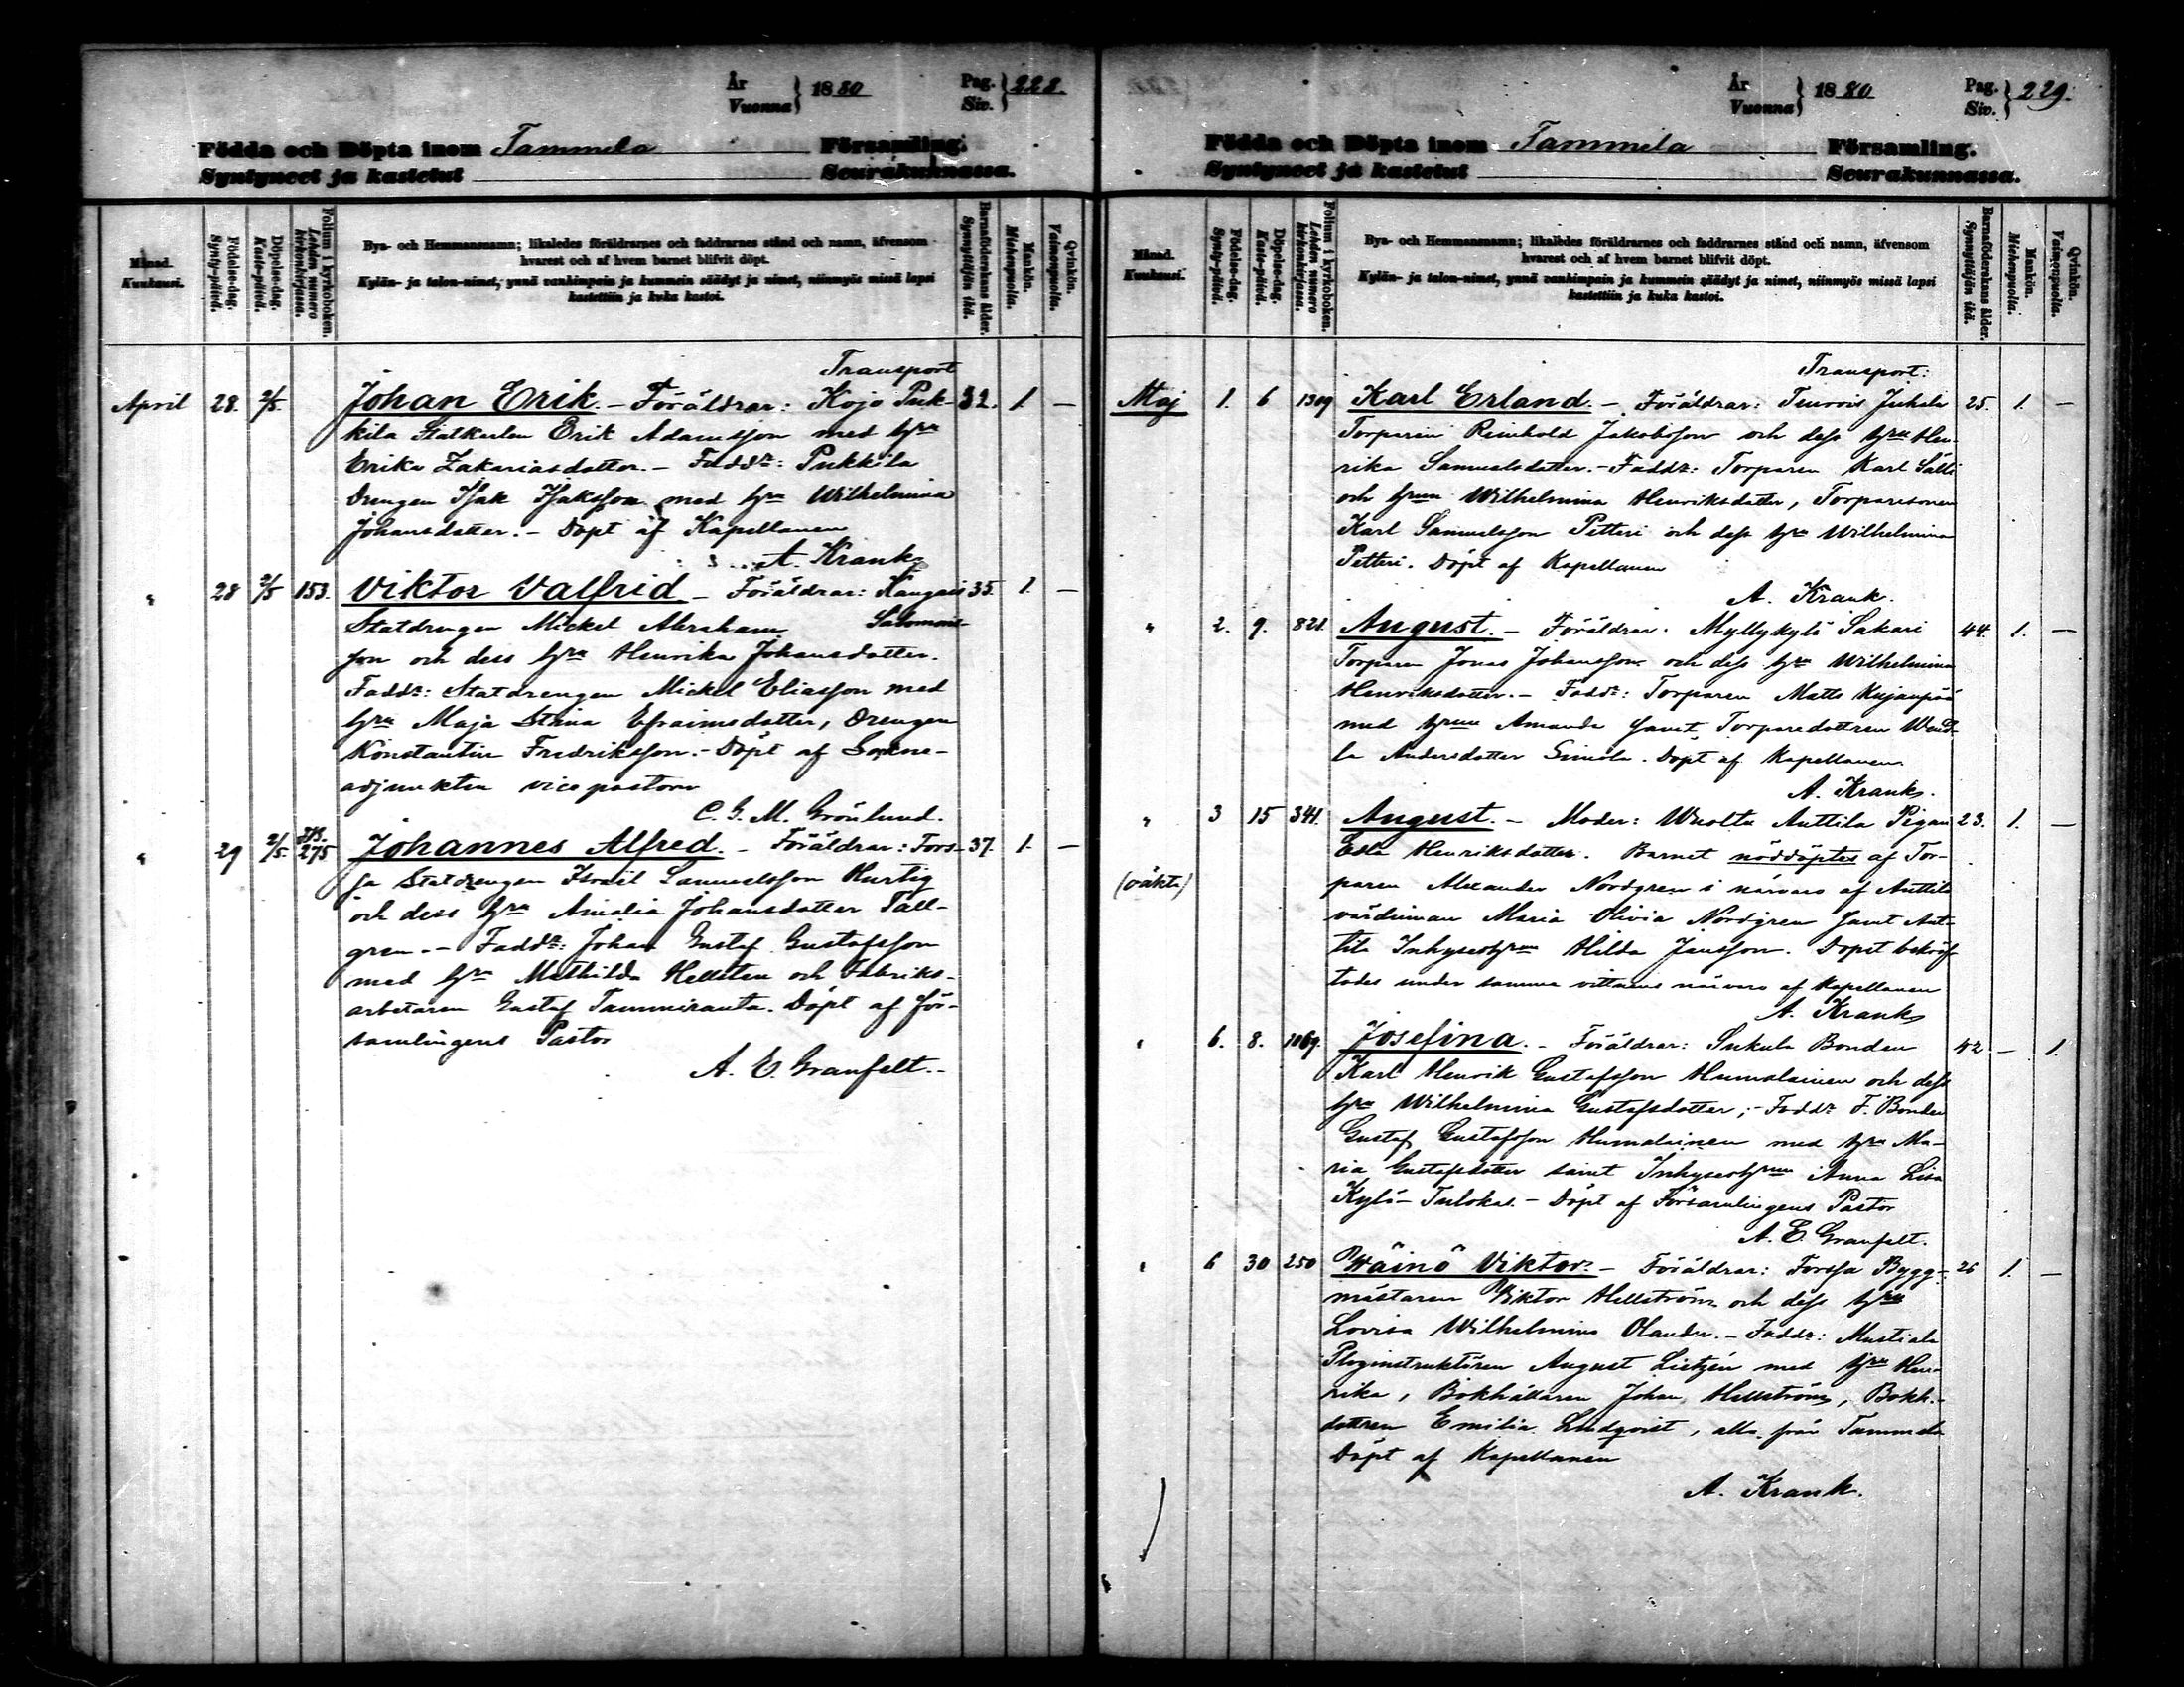 År
Vuonna } 1880
Pag.
Siv. } 228.
Födda och Döpta inom Tammela Församling.
Syntyneet ja kastetut Seurakunnassa.
Månad.
Kuukausi.
Födelse-dag.
Synty-päivä.
Döpelse-dag.
Kaste-päivä.
Folium i kyrkoboken.
Lehden numero
kirkonkirjassa.
Bya- och Hemmansnamn; likaledes föräldrarnes och faddrarnes stånd och namn, äfvensom
hvarest och af hvem barnet blifvit döpt.
Kylän- ja talon-nimet, ynnä vanhimpain ja kummein säädyt ja nimet, niinmyös missä lapsi
kastettiin ja kuka kastoi.
Barnaföderskans ålder.
Synnyttäjän ikä.
Mankön.
Miehenpuolia.
Qvinkön.
Vaimonpuolia.
Transport
April 28. 2/5. Johan Erik. – Föräldrar: Kojo Puk- 32. 1. –
kila Statkarlen Erik Adamsson med hru
Erika Zakariasdotter. – Faddr: Pukkila
Drengen Isak Isaksson med hru Wilhelmina
Johansdotter. – Döpt af Kapellanen
A. Krank
" 28 2/5 153. Viktor Valfrid – Föräldrar: Kangais 35. 1. –
Statdrengen Mickel Abraham Salomons-
son och dess hru Henrika Johansdotter.
Faddr: Statdrengen Mickel Eliasson med
hru Maja Stina Efraimsdotter, Drengen
Konstantin Fredriksson. – Döpt af Sockne-
adjunkten vice pastorn
C. G. M. Grönlund.
" 29 2/5. 275 Johannes Alfred. – Föräldrar: Fors- 37. 1. –
sa Statdrengen Israël Samuelsson Hurtig
och dess hru Amalia Johansdotter Tall-
gren. – Faddr: Johan Gustaf Gustafsson
med hru Mathilda Hellsten och Fabriks-
arbetaren Gustaf Tammiranta. Döpt af för-
samlingens Pastor
A. E. Granfelt. –
År
Vuonna } 1880
Pag.
Siv. } 229.
Födda och Döpta inom Tammela Församling.
Syntyneet ja kastetut Seurakunnassa.
Månad.
Kuukausi.
Födelse-dag.
Synty-päivä.
Döpelse-dag.
Kaste-päivä.
Folium i kyrkoboken.
Lehden numero
kirkonkirjassa.
Bya- och Hemmansnamn; likaledes föräldrarnes och faddrarnes stånd och namn, äfvensom
hvarest och af hvem barnet blifvit döpt.
Kylän- ja talon-nimet, ynnä vanhimpain ja kummein säädyt ja nimet, niinmyös missä lapsi
kastettiin ja kuka kastoi.
Barnaföderskans ålder.
Synnyttäjän ikä.
Mankön.
Miehenpuolia.
Qvinkön.
Vaimonpuolia.
Transport:
Maj 1. 6 1309 Karl Erland. – Föräldrar: Teurois Juhala 25. 1. –
Torparen Reinhold Jakobsson och dess hru Hen-
rika Samuelsdotter. – Faddr: Torparen Karl Sälli
och hrun Wilhelmina Henriksdotter, Torparesonen
Karl Samuelsson Petteri och dess hru Wilhelmina
Petteri. Döpt af Kapellanen
A. Krank.
" 2. 9. 821. August. – Föräldrar: Myllykylä Sakari 44. 1. –
Torparen Jonas Johansson och dess hru Wilhelmina
Henriksdotter. – Faddr: Torparen Matts Kujanpää
med hrun Amanda samt Torparedottren Wend-
la Andersdotter Simola. Döpt af Kapellanen
A. Krank.
" 3 15 341. August. – Moder: Wuolta Anttila Pigan 23. 1. –
Eda Henriksdotter. Barnet nöddöptes af Tor-
(oäkta) paren Alexander Nordgren i närvaro af Anttila
värdinnan Maria Olivia Nordgren samt Ant-
tila Inhyseshrun Hilda Jansson. Dopet bekräf-
tades under samma vittnens närvaro af Kapellanen
A. Krank
" 6. 8. 1069. Josefina. – Föräldrar: Sukula Bonden 42 – 1.
Karl Henrik Gustafsson Humalainen och dess
hru Wilhelmina Gustafsdotter; – Faddr: F. Bonden
Gustaf Gustafsson Humalainen med hru Ma-
ria Gustafsdotter samt Inhyseshrun Anna Lisa
Kylä-Tulokas. – Döpt af Församlingens Pastor
A. E. Granfelt.
" 6 30 250 Wäinö Viktor. – Föräldrar: Forssa Bygg- 26 1. –
mästaren Viktor Hellström och dess hru
Lovisa Wilhelmina Olander. – Faddr: Mustiala
Ploginstruktören August Lietzén med hru Hen-
rika, Bokhållaren Johan Hellström, Bokh.-
dottren Emilia Lindqvist, alla från Tammela
Döpt af Kapellanen
A. Krank.